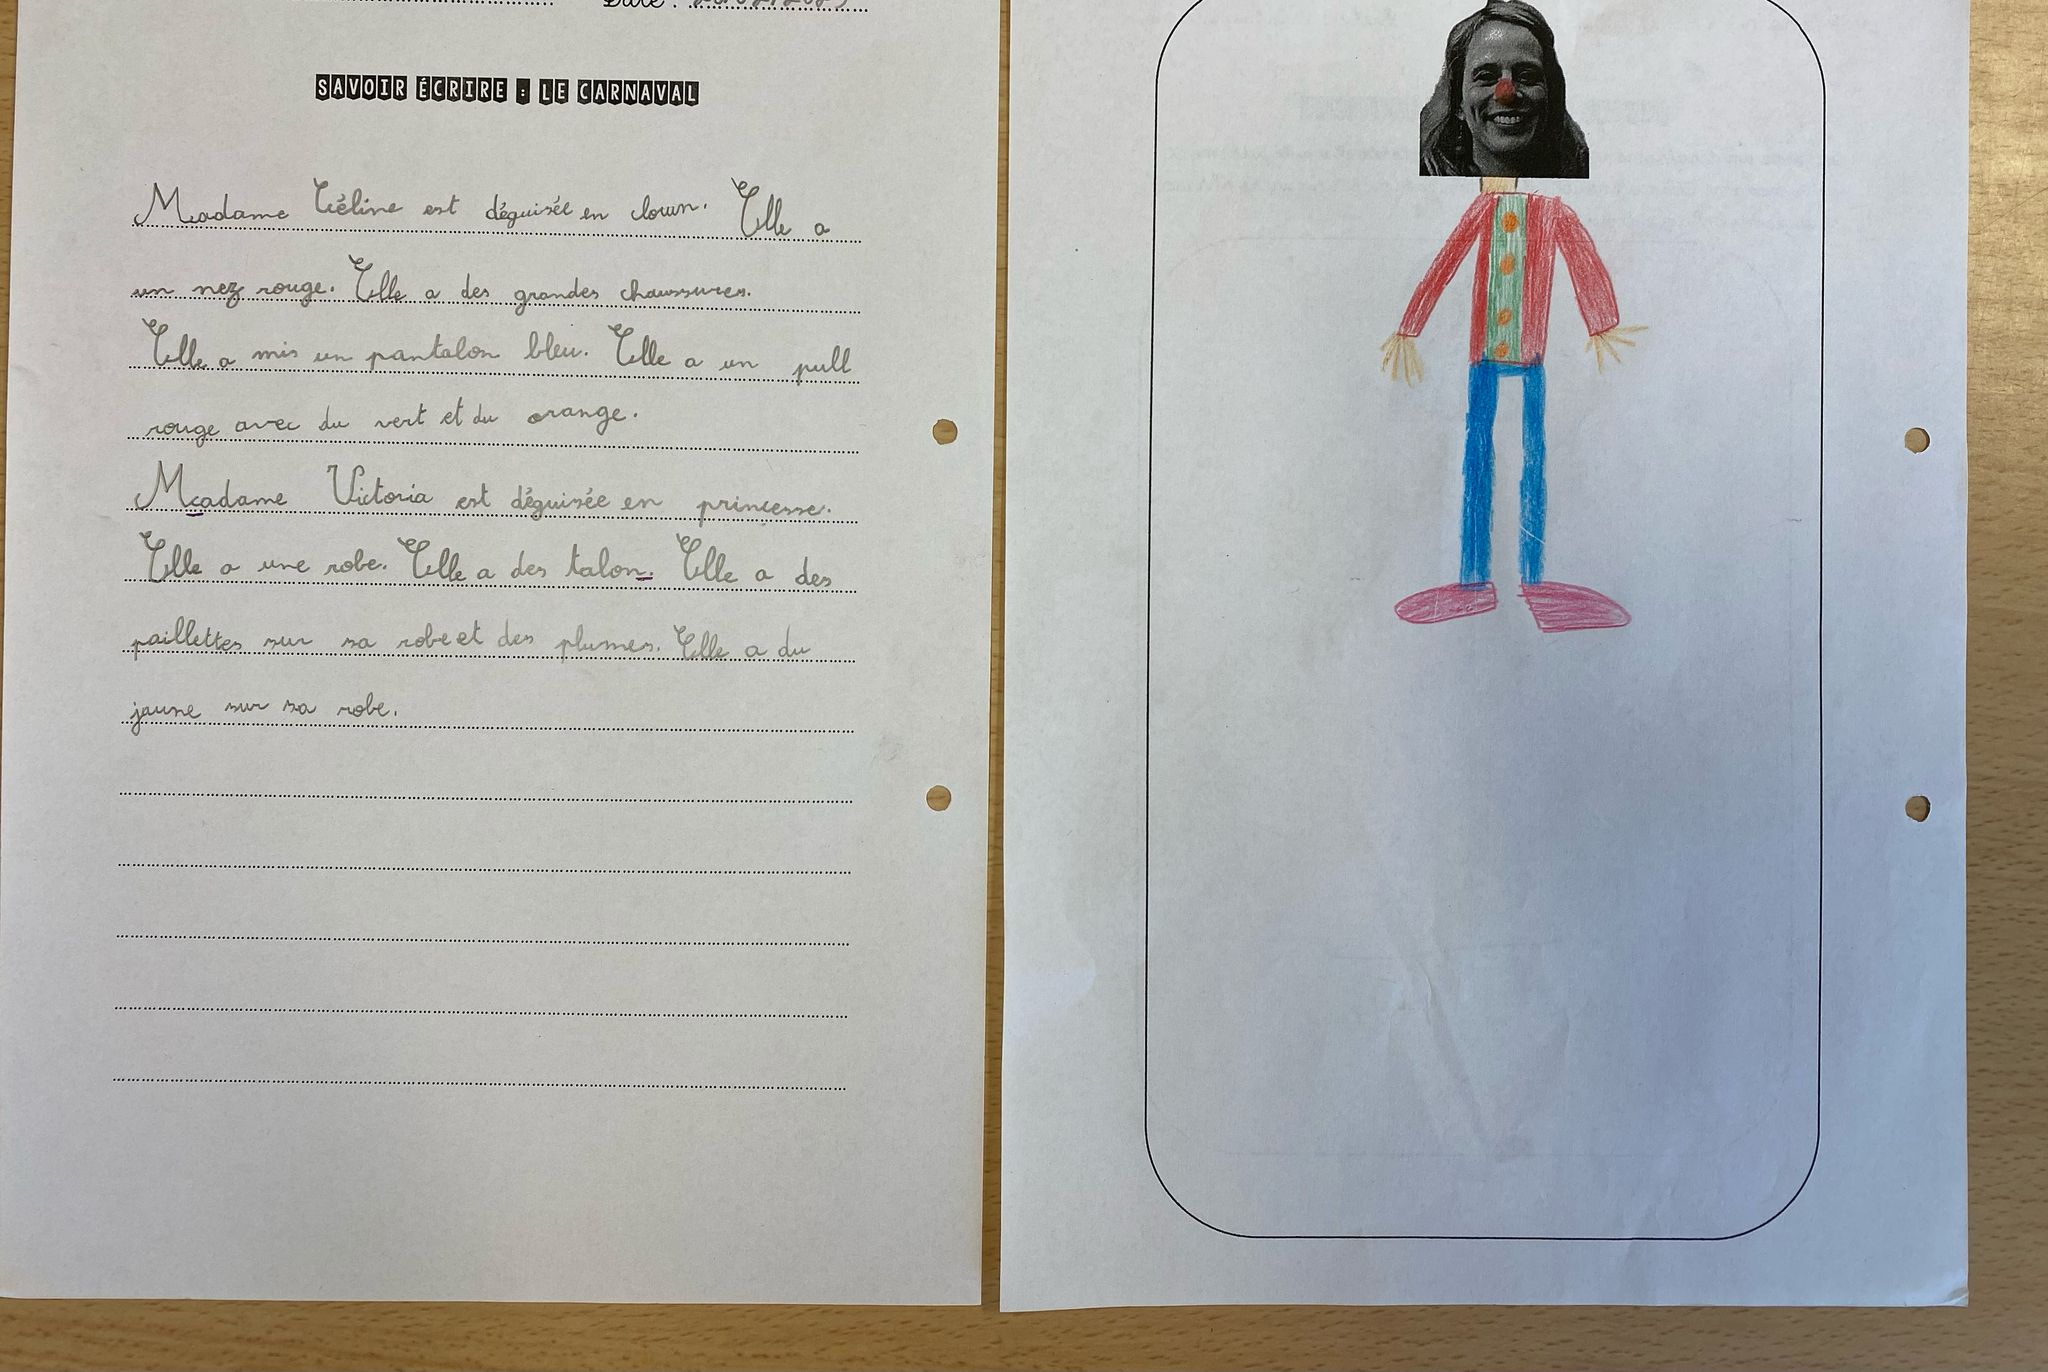 Date :
SAVOIR ÉCRIRE : LE CARNAVAL
Madame Céline est déguisée en clown. Elle a
un nez rouge. Elle a des grandes chaussures.
Elle a mis un pantalon bleu. Elle a un pull
rouge avec du vert et du orange.
Madame Victoria est déguisée en princesse.
Elle a une robe. Elle a des talon. Elle a des
paillettes sur sa robe et des plumes. Elle a du
jaune sur sa robe.